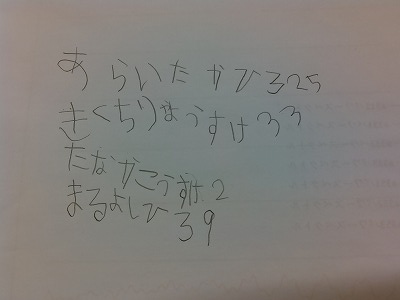 あらいたかひろ25
きくちりょうすけ33
たなかこうすけ2
まるよしひろ9